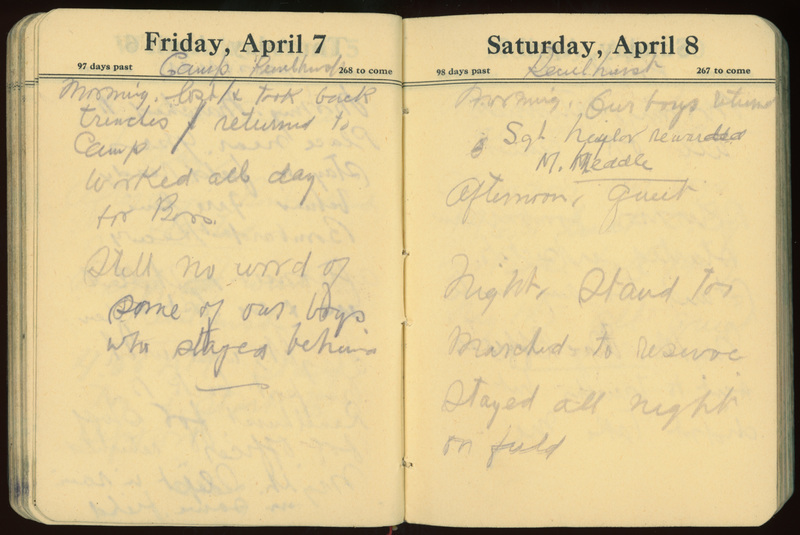 Friday, April 7
97 days past
Camp
268 to come
Morning. lost & took back
trenches & returned to
Camp
Worked all day
for Boss.
Still no word of
some of our boys
who stayed behind
Saturday, April 8
98 days past
267 to come
Morning. Our boys returned
Sgt rewarded
M. Meadle
Afternoon, quiet
Night. Stand to
Marched to reserve
Stayed all night
on field